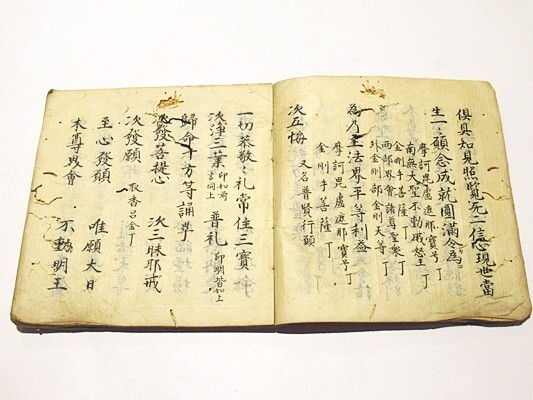 俱具知見照覧死一信心現世當
生一〻願念成就圓滿令為
摩訶毘盧遮那寳号丁
南無大聖不動威怒王丁
金剛手菩薩丁
両部界會諸尊聖衆丁
外金剛部金剛天等丁
為乃至法界平等利益
摩訶毘盧遮那寳号丁
金剛手菩薩丁
次五悔 又名普賢行願
一切恭敬〻礼常住三寳
次浄三業 印如前言同上 普礼 印明皆如上
歸命十方等誦畢
次發菩提心 次三昧耶戒
次發願 取香呂金丁
至心發願 唯願大日
本尊界會 不動明王